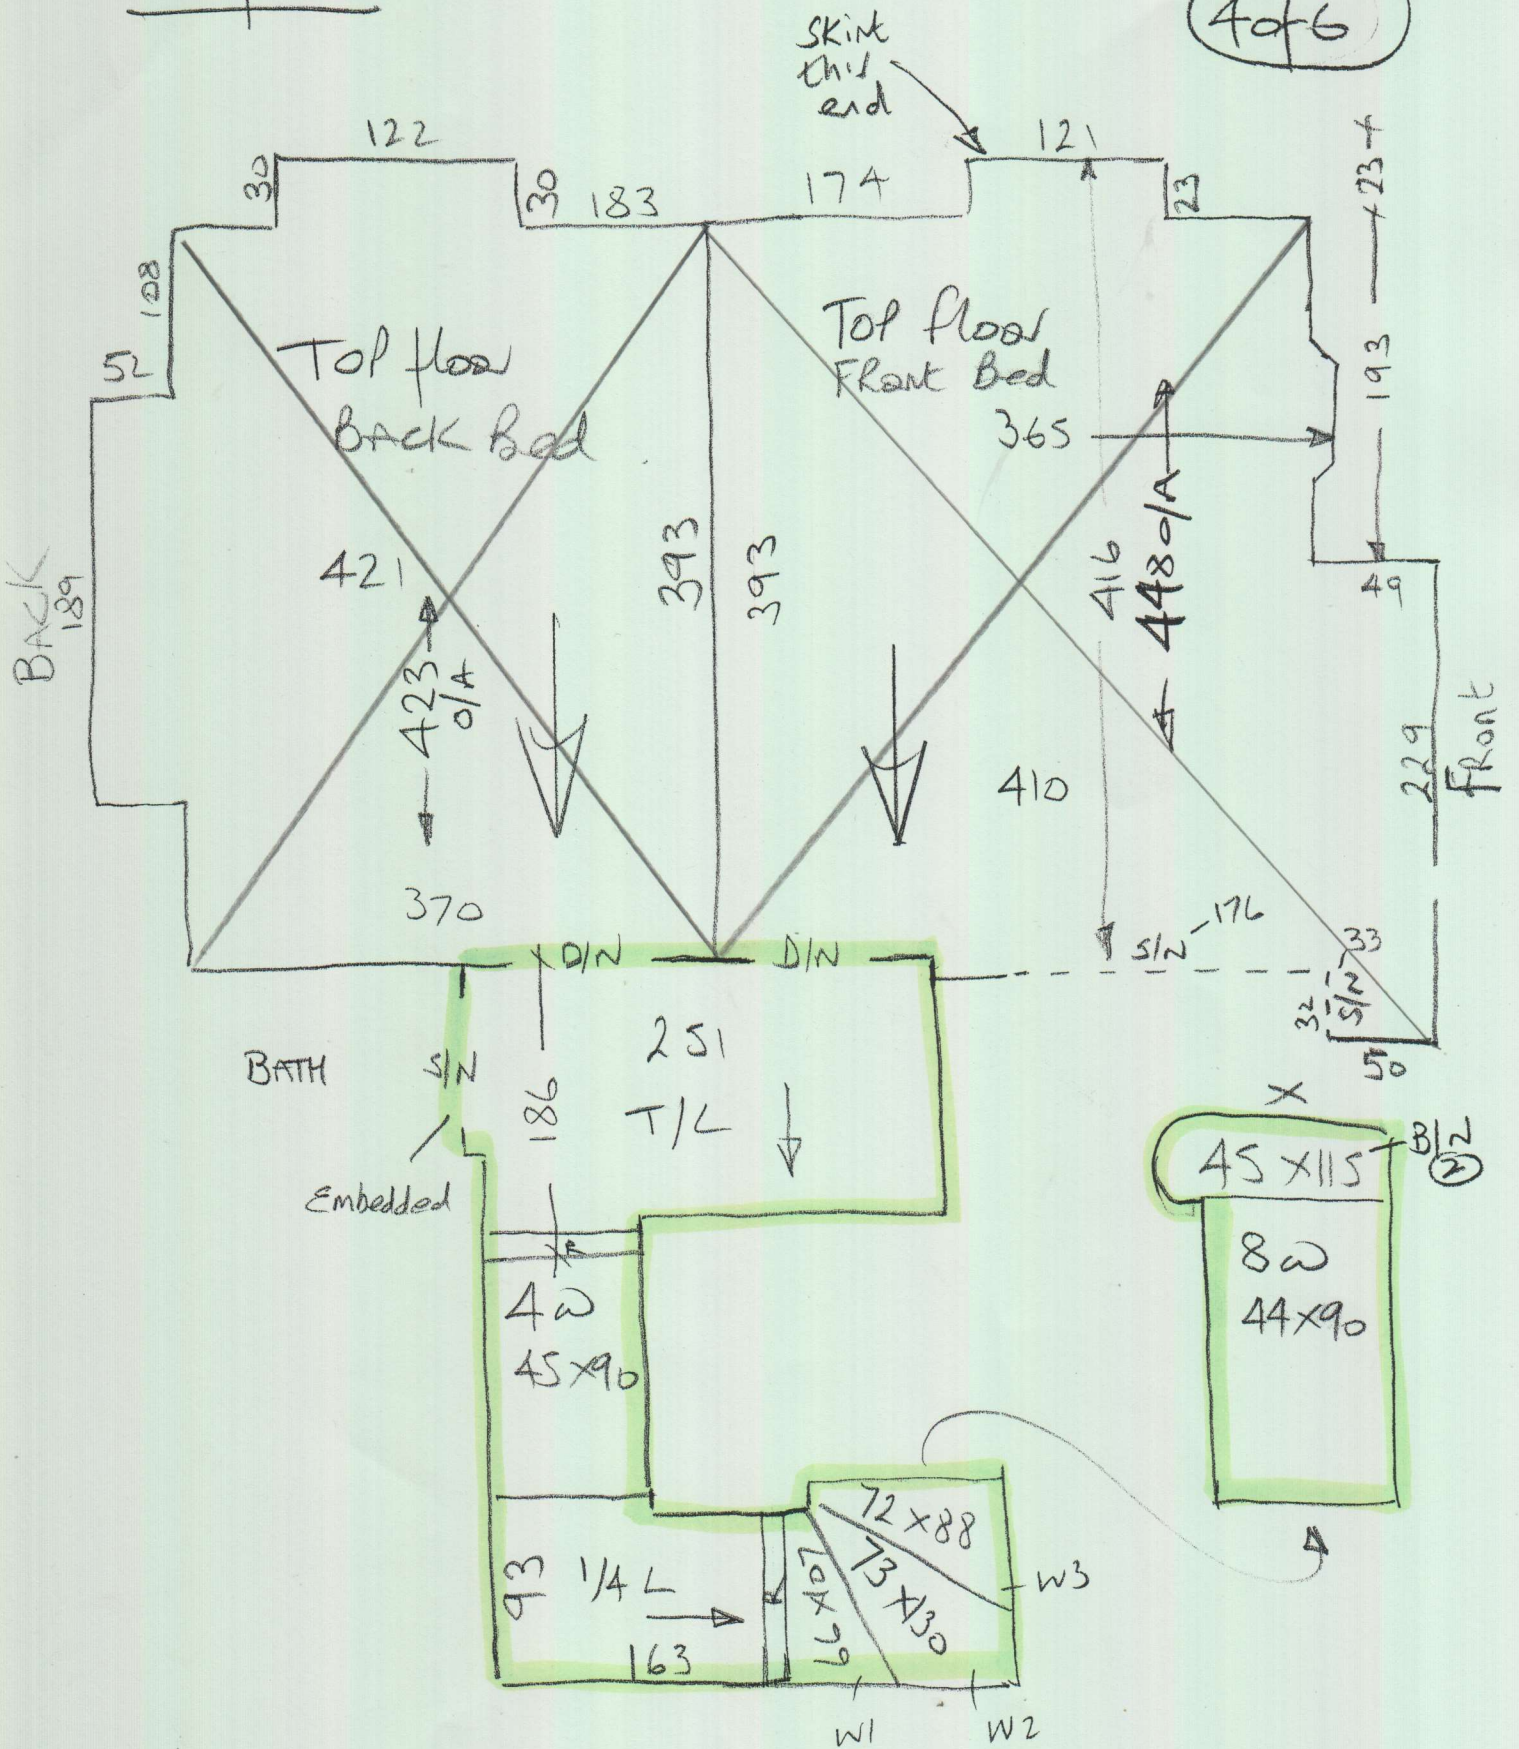 4 of 6
Skirt
this
end
122
121
30
30
183
174
23
23
108
52
Top floor
BACK Bed
Top floor
FRont Bed
365
193
BACK
189
421
393
393
416
448 O/A
49
423
O/A
229
FRont
410
370
D/N
D/N
S/N
176
33
32
S/N
50
BATH
S/N
186
251
T/L
X
Embedded
45 X 115
B/2
2
R
4W
45 X 90
8W
44 X 90
72 X 88
73 X 130
66 X 107
W3
93
1/4 L
R
163
W1
W2